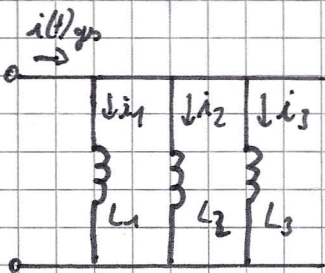 i(t)
i1 i2 i3
L1 L2 L3